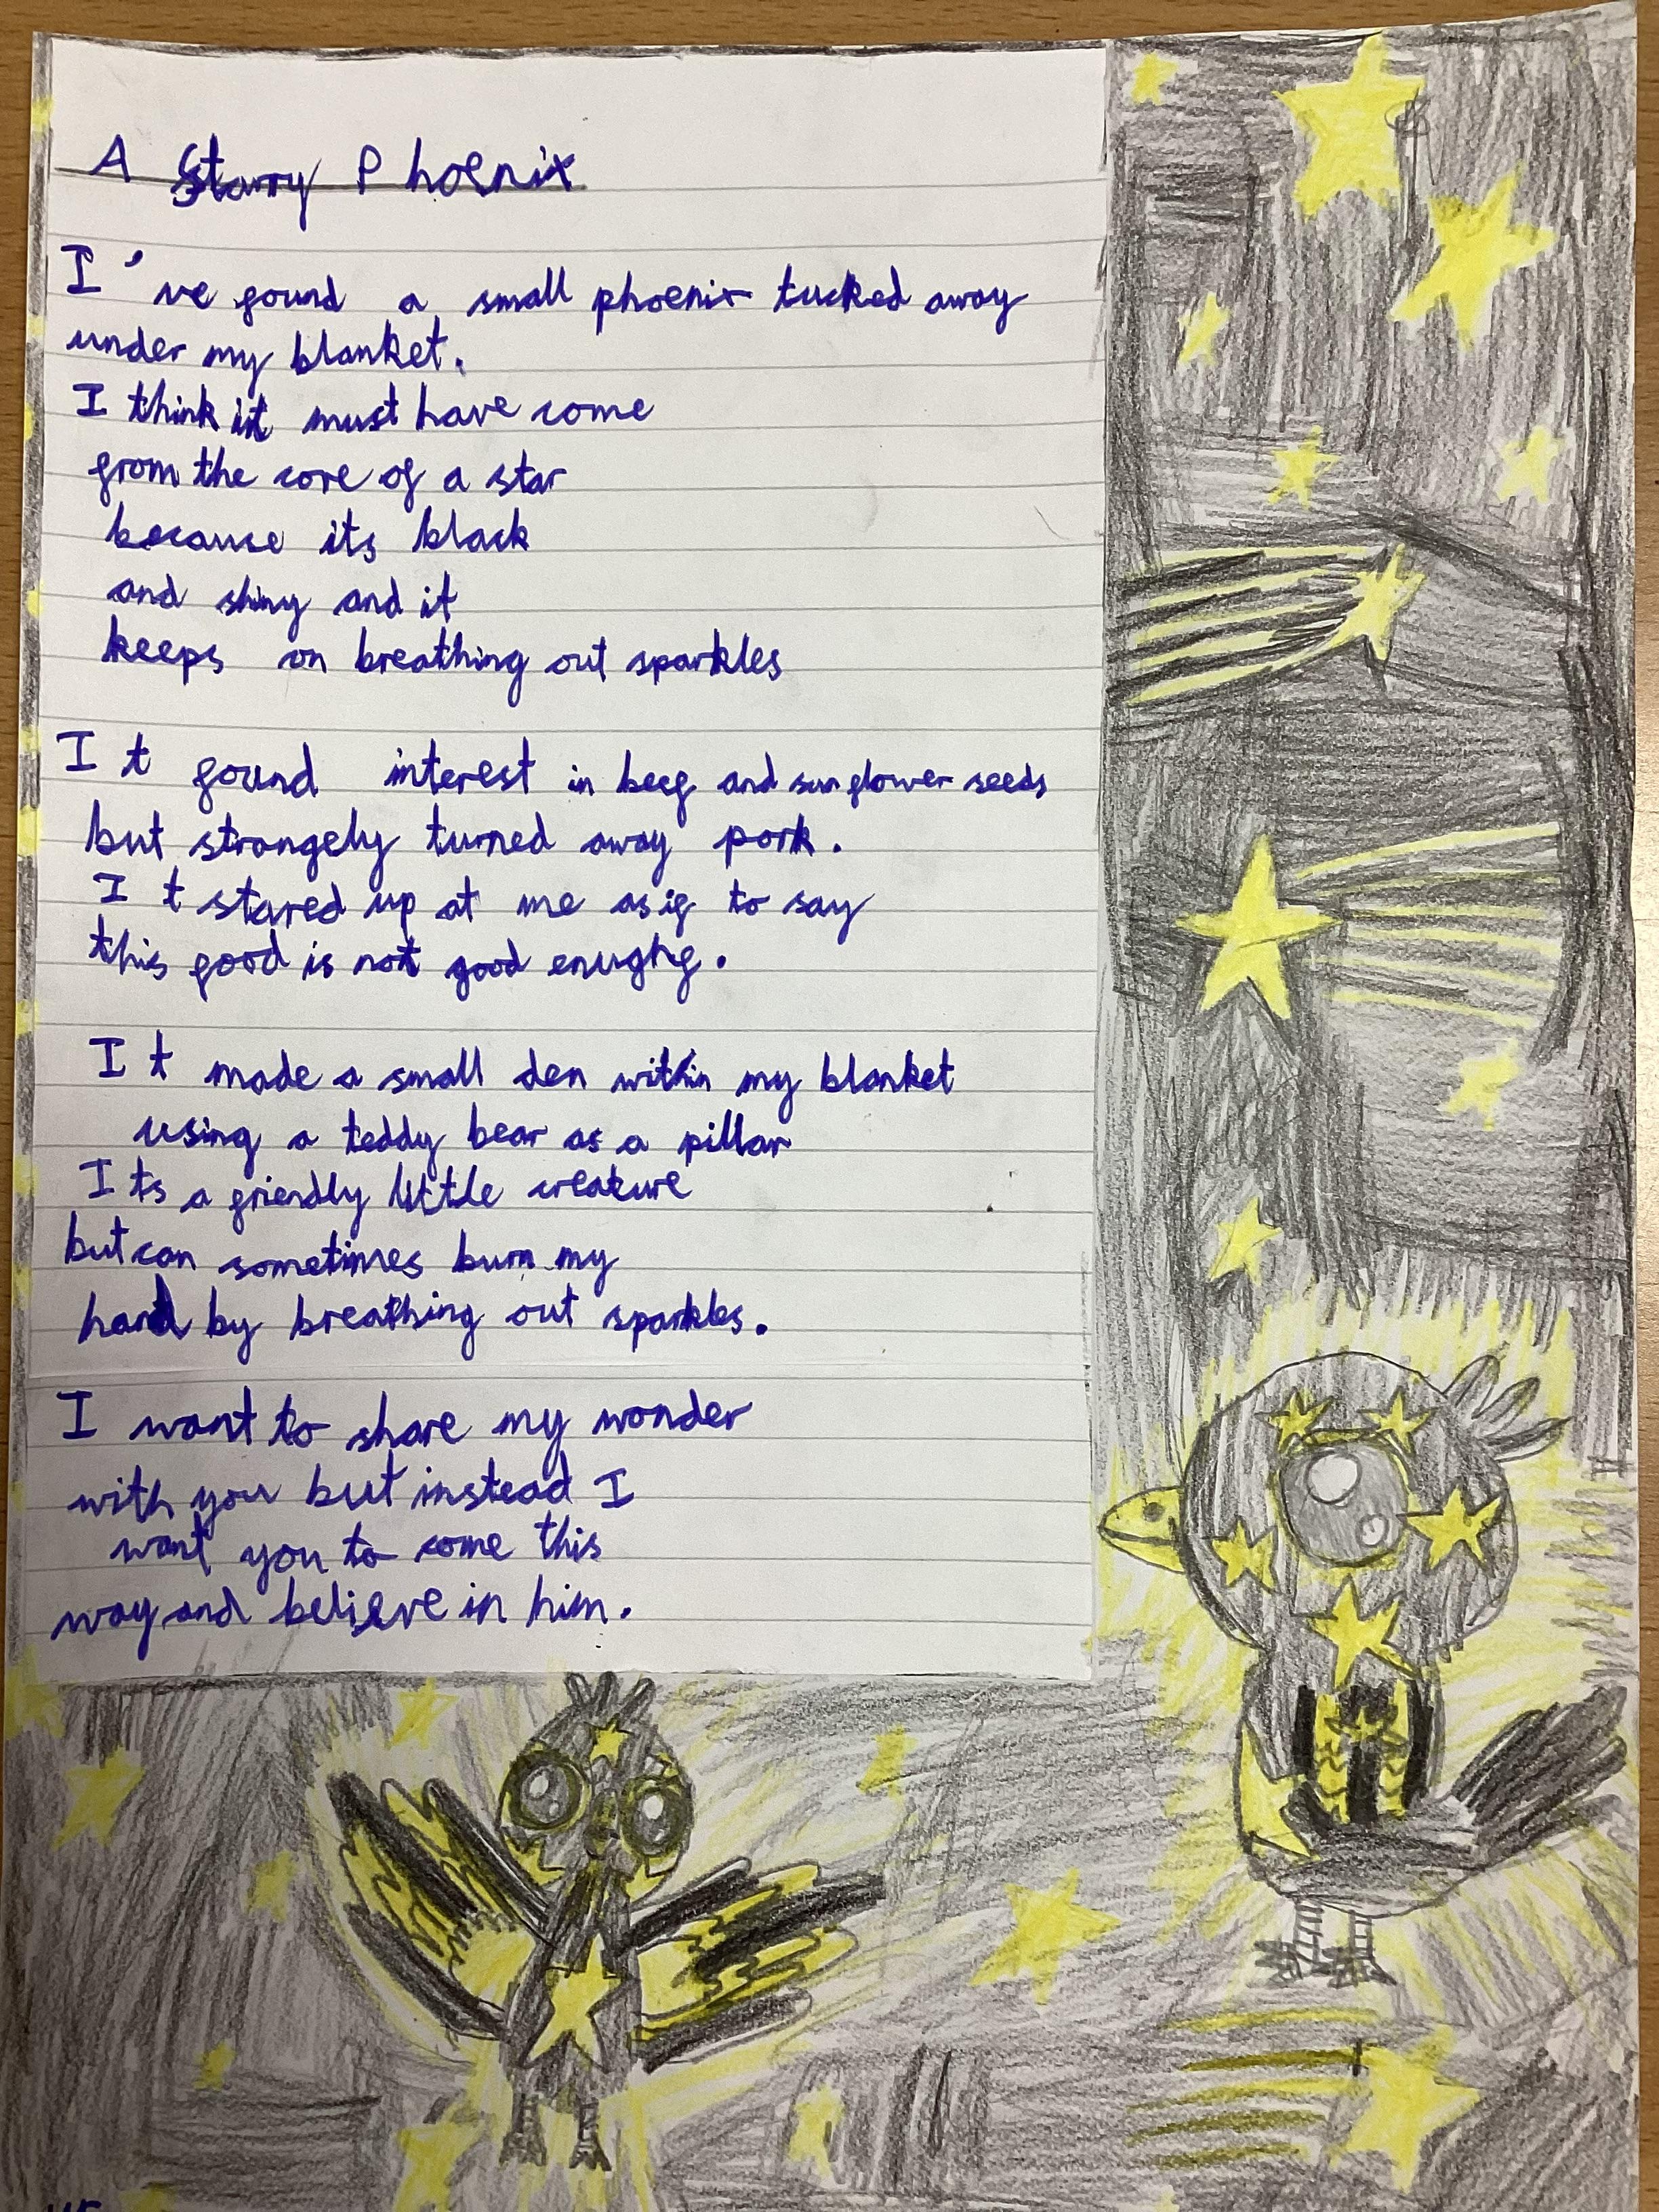 A Starry Phoenix
I've found a small phoenix tucked away
under my blanket.
I think it must have come
from the core of a star
because its black
and shiny and it
keeps on breathing out sparkles
It found interest in beef and sunflower seeds
but strangely turned away pork.
It stared up at me as if to say
this food is not good enughf.
It made a small den within my blanket
using a teddy bear as a pillar
Its a friendly little creature
but can sometimes burn my
hand by breathing out sparkles.
I want to share my wonder
with you but instead I
want you to come this
way and believe in him.